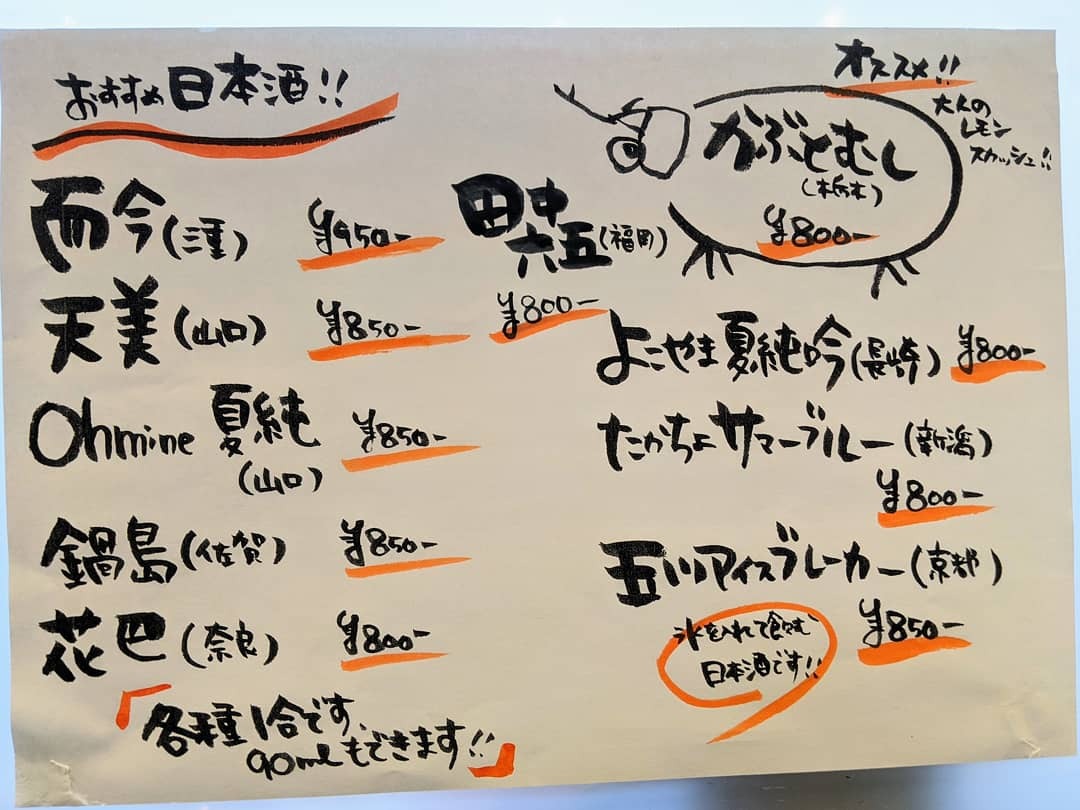 おすすめ日本酒!!
而今(三重) ¥950-
天美(山口) ¥850-
Ohmine 夏純 ¥850-
(山口)
鍋島(佐賀) ¥850-
花巴(奈良) ¥800-
「各種1合です、
90mlもできます!!」
田中
六五(福岡)
¥800-
オススメ!!
大人の
レモン
スカッシュ!!
かぶとむし
(栃木)
¥800-
よこやま夏純吟(長崎) ¥800-
たかちよサマーブルー(新潟)
¥800-
玉川アイスブレーカー(京都)
¥850-
氷を入れて飲む
日本酒です!!